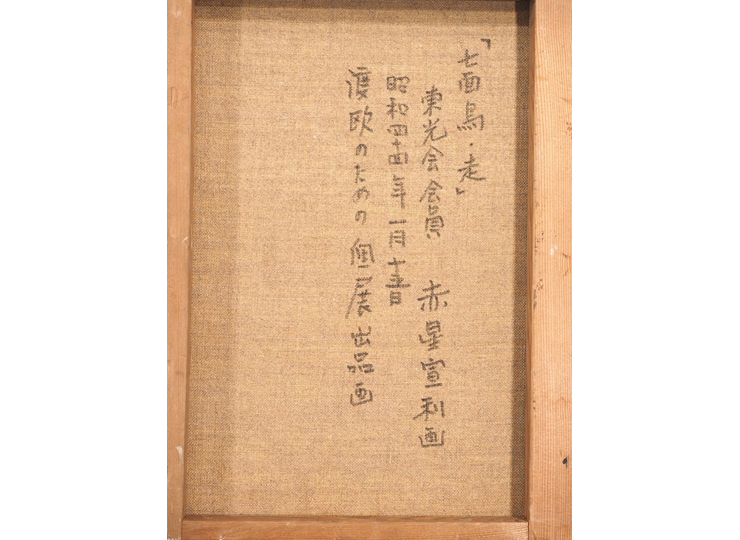 「七面鳥・走」
東光会会員 赤星宣利画
昭和四十四年一月十五日
渡欧のための個展出品画